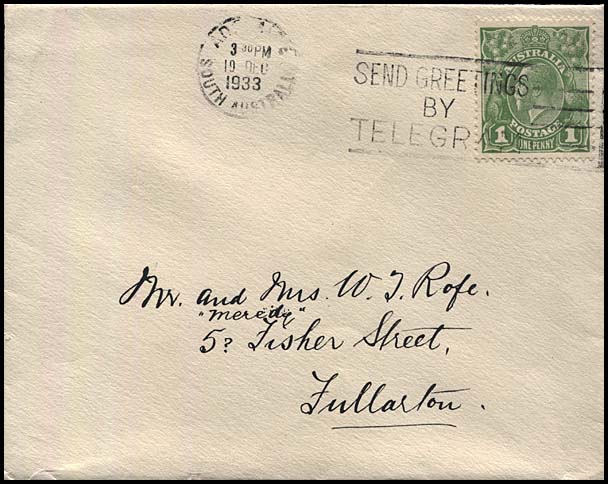 ADELAIDE
3 30 PM
19 DEC
1933
SOUTH AUSTRALIA
SEND GREETINGS
BY
TELEGR
AUSTRALIA
POSTAGE
1 1
ONE PENNY
Mr. and Mrs. W. J. Rofe.
5? Fisher Street,
Fullarton.